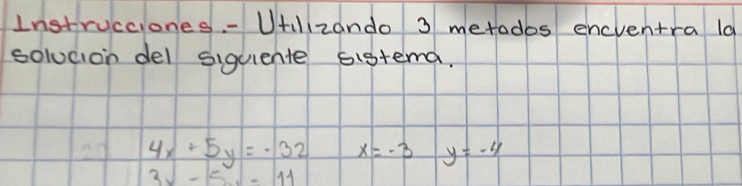 Instrucciones.- Utilizando 3 metodos encuentra la
solución del siguiente sistema.
4x + 5y = -32 x = -3 y = -4
3x - 5y = 11